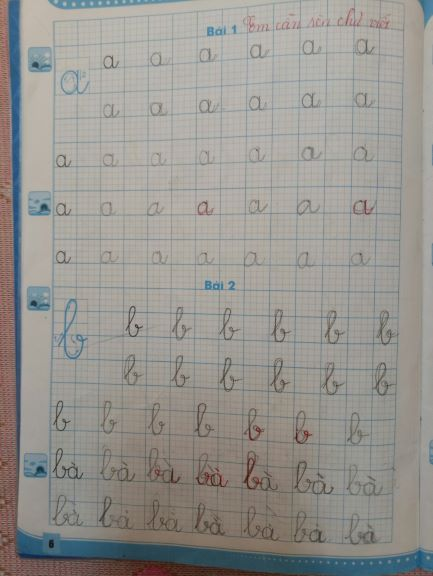 Bài 1 Em cần rèn chữ viết
a a a a a a a
a a a a a a
a a a a a a a
a a a a a a a
a a a a a a a
Bài 2
b b b b b b b
b b b b b b
b b b b b b b
bà bà bà bà bà bà bà
bà bà bà bà bà bà bà
6